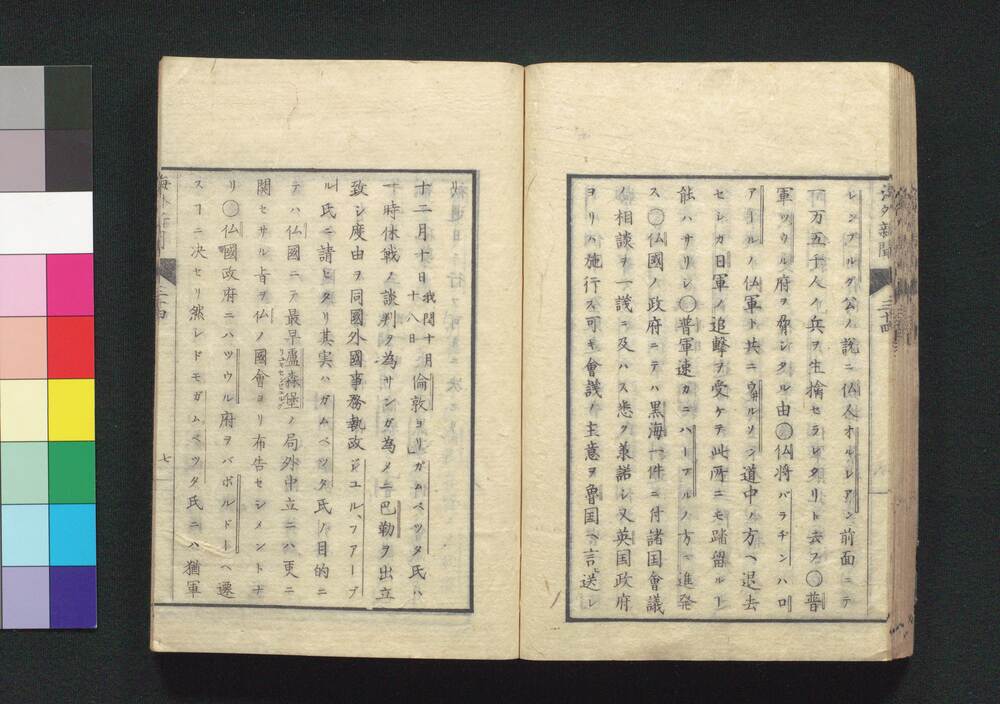 海外新聞
三十四
レンブルグ公ノ説ニ仏人オルレアン前面ニテ
一万五千人ノ兵ヲ生擒セラレタリト云フ〇普
軍ツウル府ヲ脅シタル由〇仏将バラヂンハロ
アールノ仏軍ト共ニウ井ルソン道中ノ方ヘ退去
セシガ日軍ノ追撃ヲ受ケテ此所ニモ踏留ルヿ
能ハサリシ〇普軍速カニハーブルノ方ヘ進発
ス〇仏國ノ政府ニテハ黒海一件ニ付諸国會議
ノ相談ヲ一議ニ及ハス悉ク承諾シ又英国政府
ヨリハ施行ス可キ會議ノ主意ヲ魯国ヘ言送レ
十二月十日我閏十月十八日倫敦ヨリガムベツタ氏ハ
十時休戦ノ談判ヲ為サンガ為メニ巴勒ヲ出立
致シ度由ヲ同國外國事務執政ジユル、フアーブ
ル氏ニ請ヒタリ其実ハガムベツタ氏ノ目的ニ
テハ仏國ニテ最早盧森堡ノ局外中立ニハ更ニ
関セサル旨ヲ仏ノ國會ヨリ布告セシメントナ
リ〇仏國政府ニハツウル府ヲバボルドーヘ遷
スヿニ决セリ然レドモガムベツタ氏ニハ猶軍
三十四
七